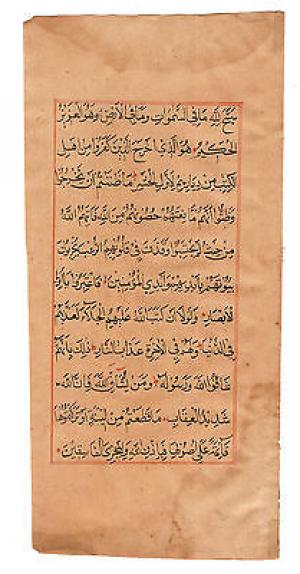 سبح لله ما في السموات وما في الأرض وهو العزيز
الحكيم هو الذي أخرج الذين كفروا من أهل
الكتب من ديارهم لأول الحشر ما ظننتم أن يخرجوا
وظنوا أنهم مانعتهم حصونهم من الله فأتهم الله
من حيث لم يحتسبوا وقذف في قلوبهم الرعب يخربون
بيوتهم بأيديهم وأيدي المؤمنين فاعتبروا يا أولي
الأبصار ولولا أن كتب الله عليهم الجلاء لعذبهم
في الدنيا ولهم في الآخرة عذاب النار ذلك بأنهم
شاقوا الله ورسوله ومن يشاق الله فإن الله
شديد العقاب ما قطعتم من لينة أو تركتموها
قائمة على أصولها فبإذن الله وليخزي الفاسقين